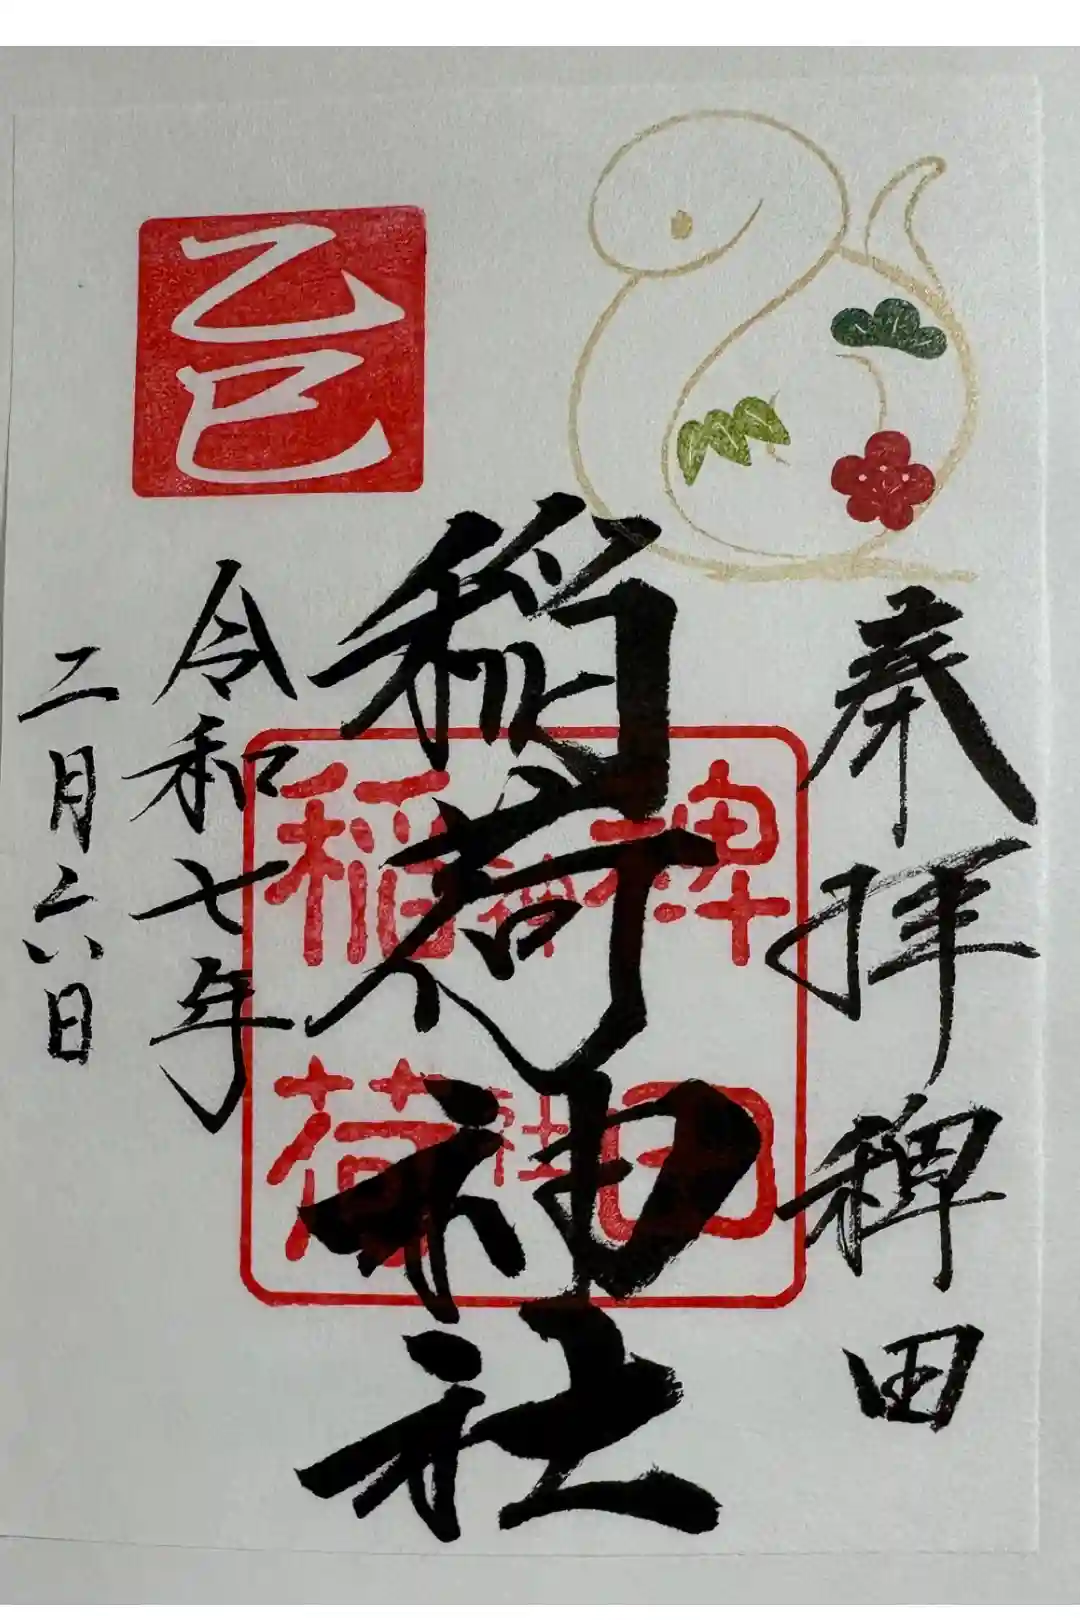 奉拝 稗田
稲荷神社
令和七年
二月二六日
乙巳
稗田
神社
稲荷